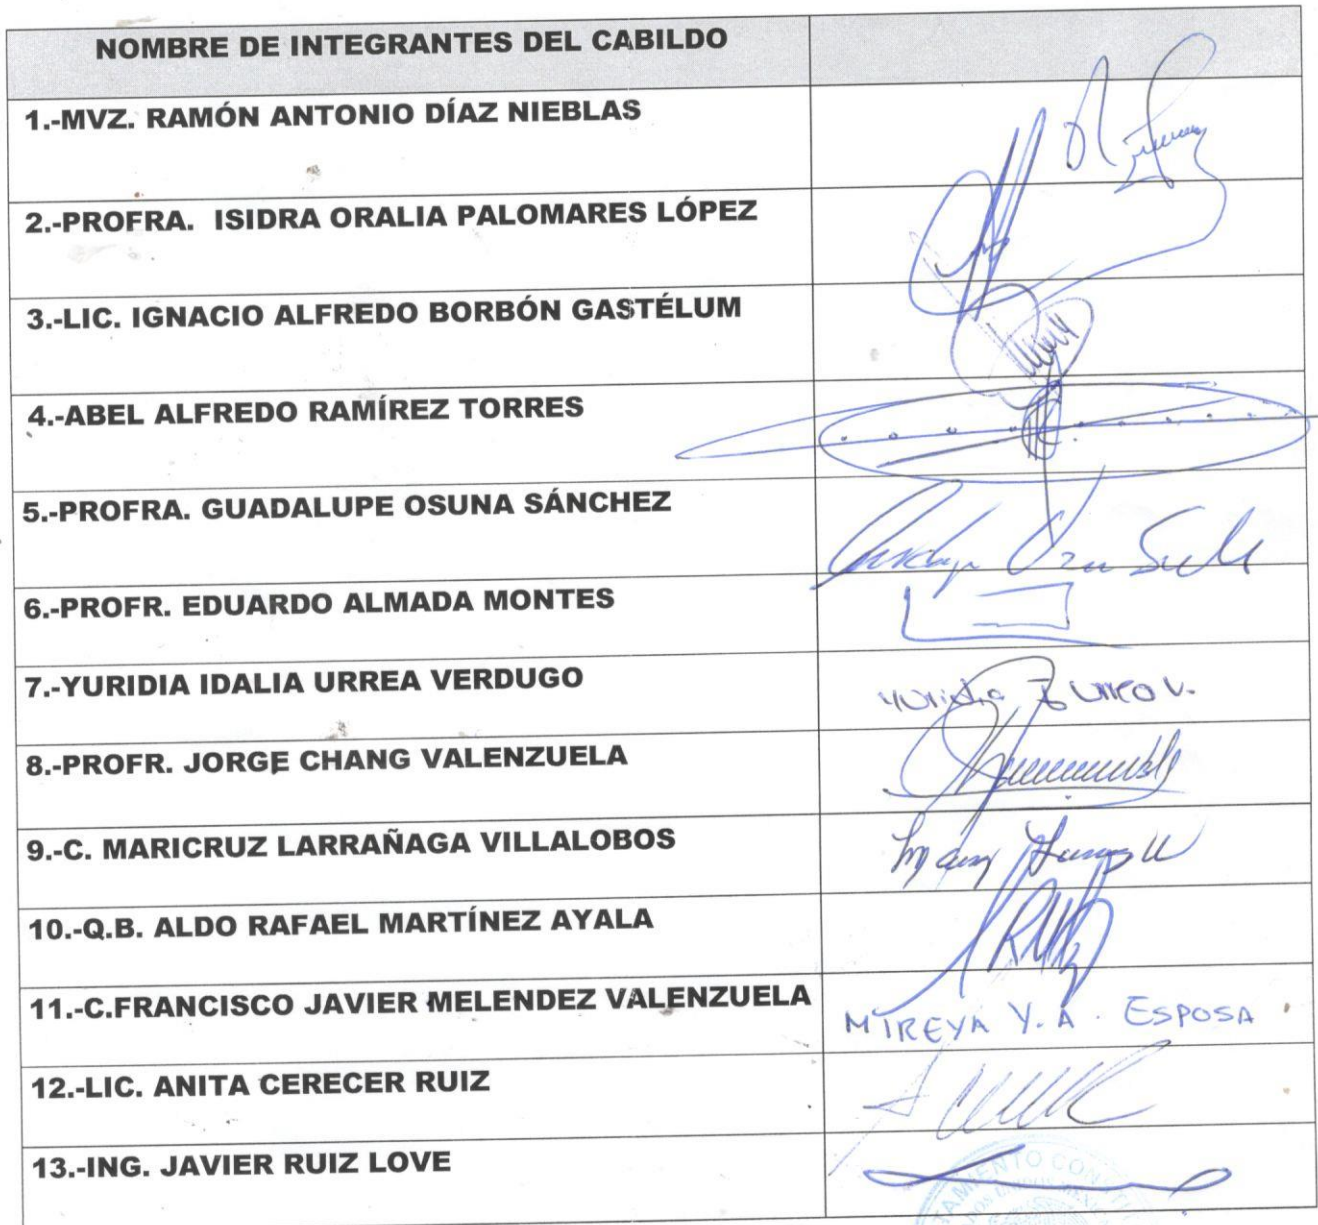 NOMBRE DE INTEGRANTES DEL CABILDO
1.-MVZ. RAMÓN ANTONIO DÍAZ NIEBLAS
2.-PROFRA. ISIDRA ORALIA PALOMARES LÓPEZ
3.-LIC. IGNACIO ALFREDO BORBÓN GASTÉLUM
4.-ABEL ALFREDO RAMÍREZ TORRES
5.-PROFRA. GUADALUPE OSUNA SÁNCHEZ
6.-PROFR. EDUARDO ALMADA MONTES
7.-YURIDIA IDALIA URREA VERDUGO
8.-PROFR. JORGE CHANG VALENZUELA
9.-C. MARICRUZ LARRAÑAGA VILLALOBOS
10.-Q.B. ALDO RAFAEL MARTÍNEZ AYALA
11.-C.FRANCISCO JAVIER MELENDEZ VALENZUELA MIREYA Y. A. ESPOSA
12.-LIC. ANITA CERECER RUIZ
13.-ING. JAVIER RUIZ LOVE